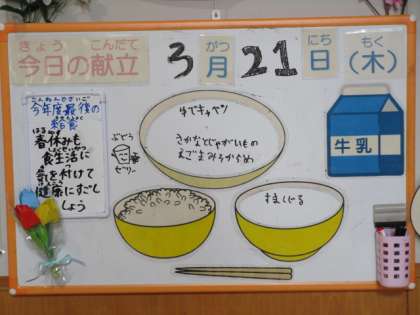 きょう こんだて
今日の献立
3 がつ 21 にち もく
3月21日(木)
こんねんどさいご
今年度最後の
給食
はる
春休みも
食生活に
気を付けて
健康にすごし
しょう
ぶどう
ゼリー
ゆでキャベツ
さかなとじゃがいもの
えごまみそがらめ
すましじる
牛乳